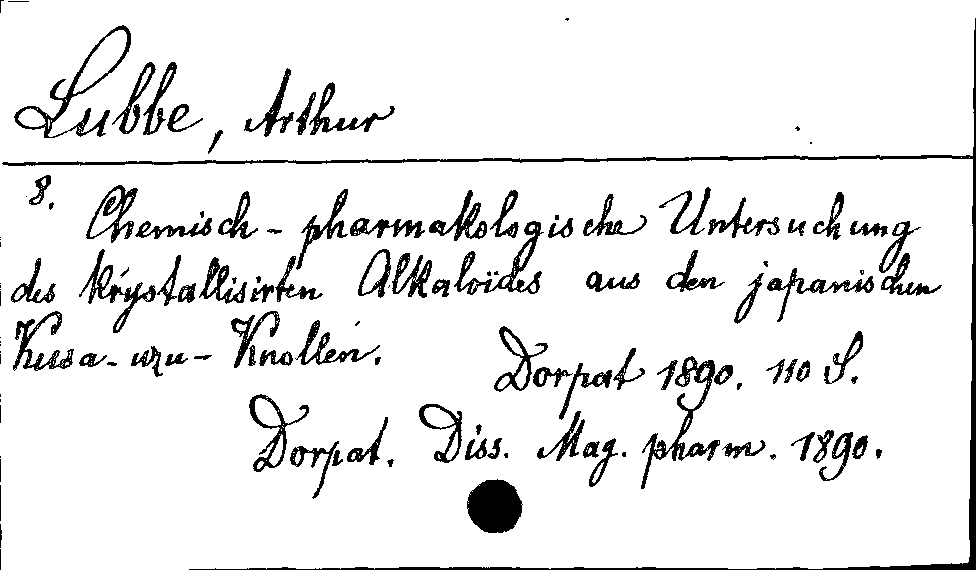 Lubbe, Arthur
8.
Chemisch-pharmakologische Untersuchung
des krystallisirten Alkaloïdes aus den japanischen
Kusa-uzu-Knollen.
Dorpat 1890. 110 S.
Dorpat. Diss. Mag. pharm. 1890.